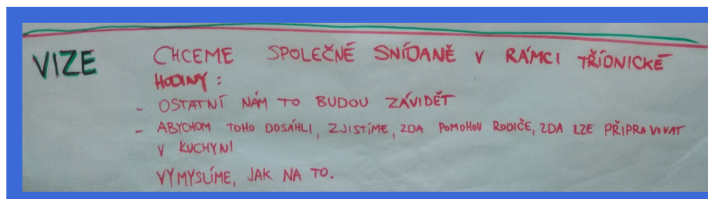 VIZE CHCEME SPOLEČNÉ SNÍDANĚ V RÁMCI TŘÍDNICKÉ
HODINY :
- OSTATNÍ NÁM TO BUDOU ZÁVIDĚT
- ABYCHOM TOHO DOSÁHLI, ZJISTÍME, ZDA POMOHOU RODIČE, ZDA LZE PŘIPRAVOVAT
V KUCHYNI
VYMYSLÍME, JAK NA TO.